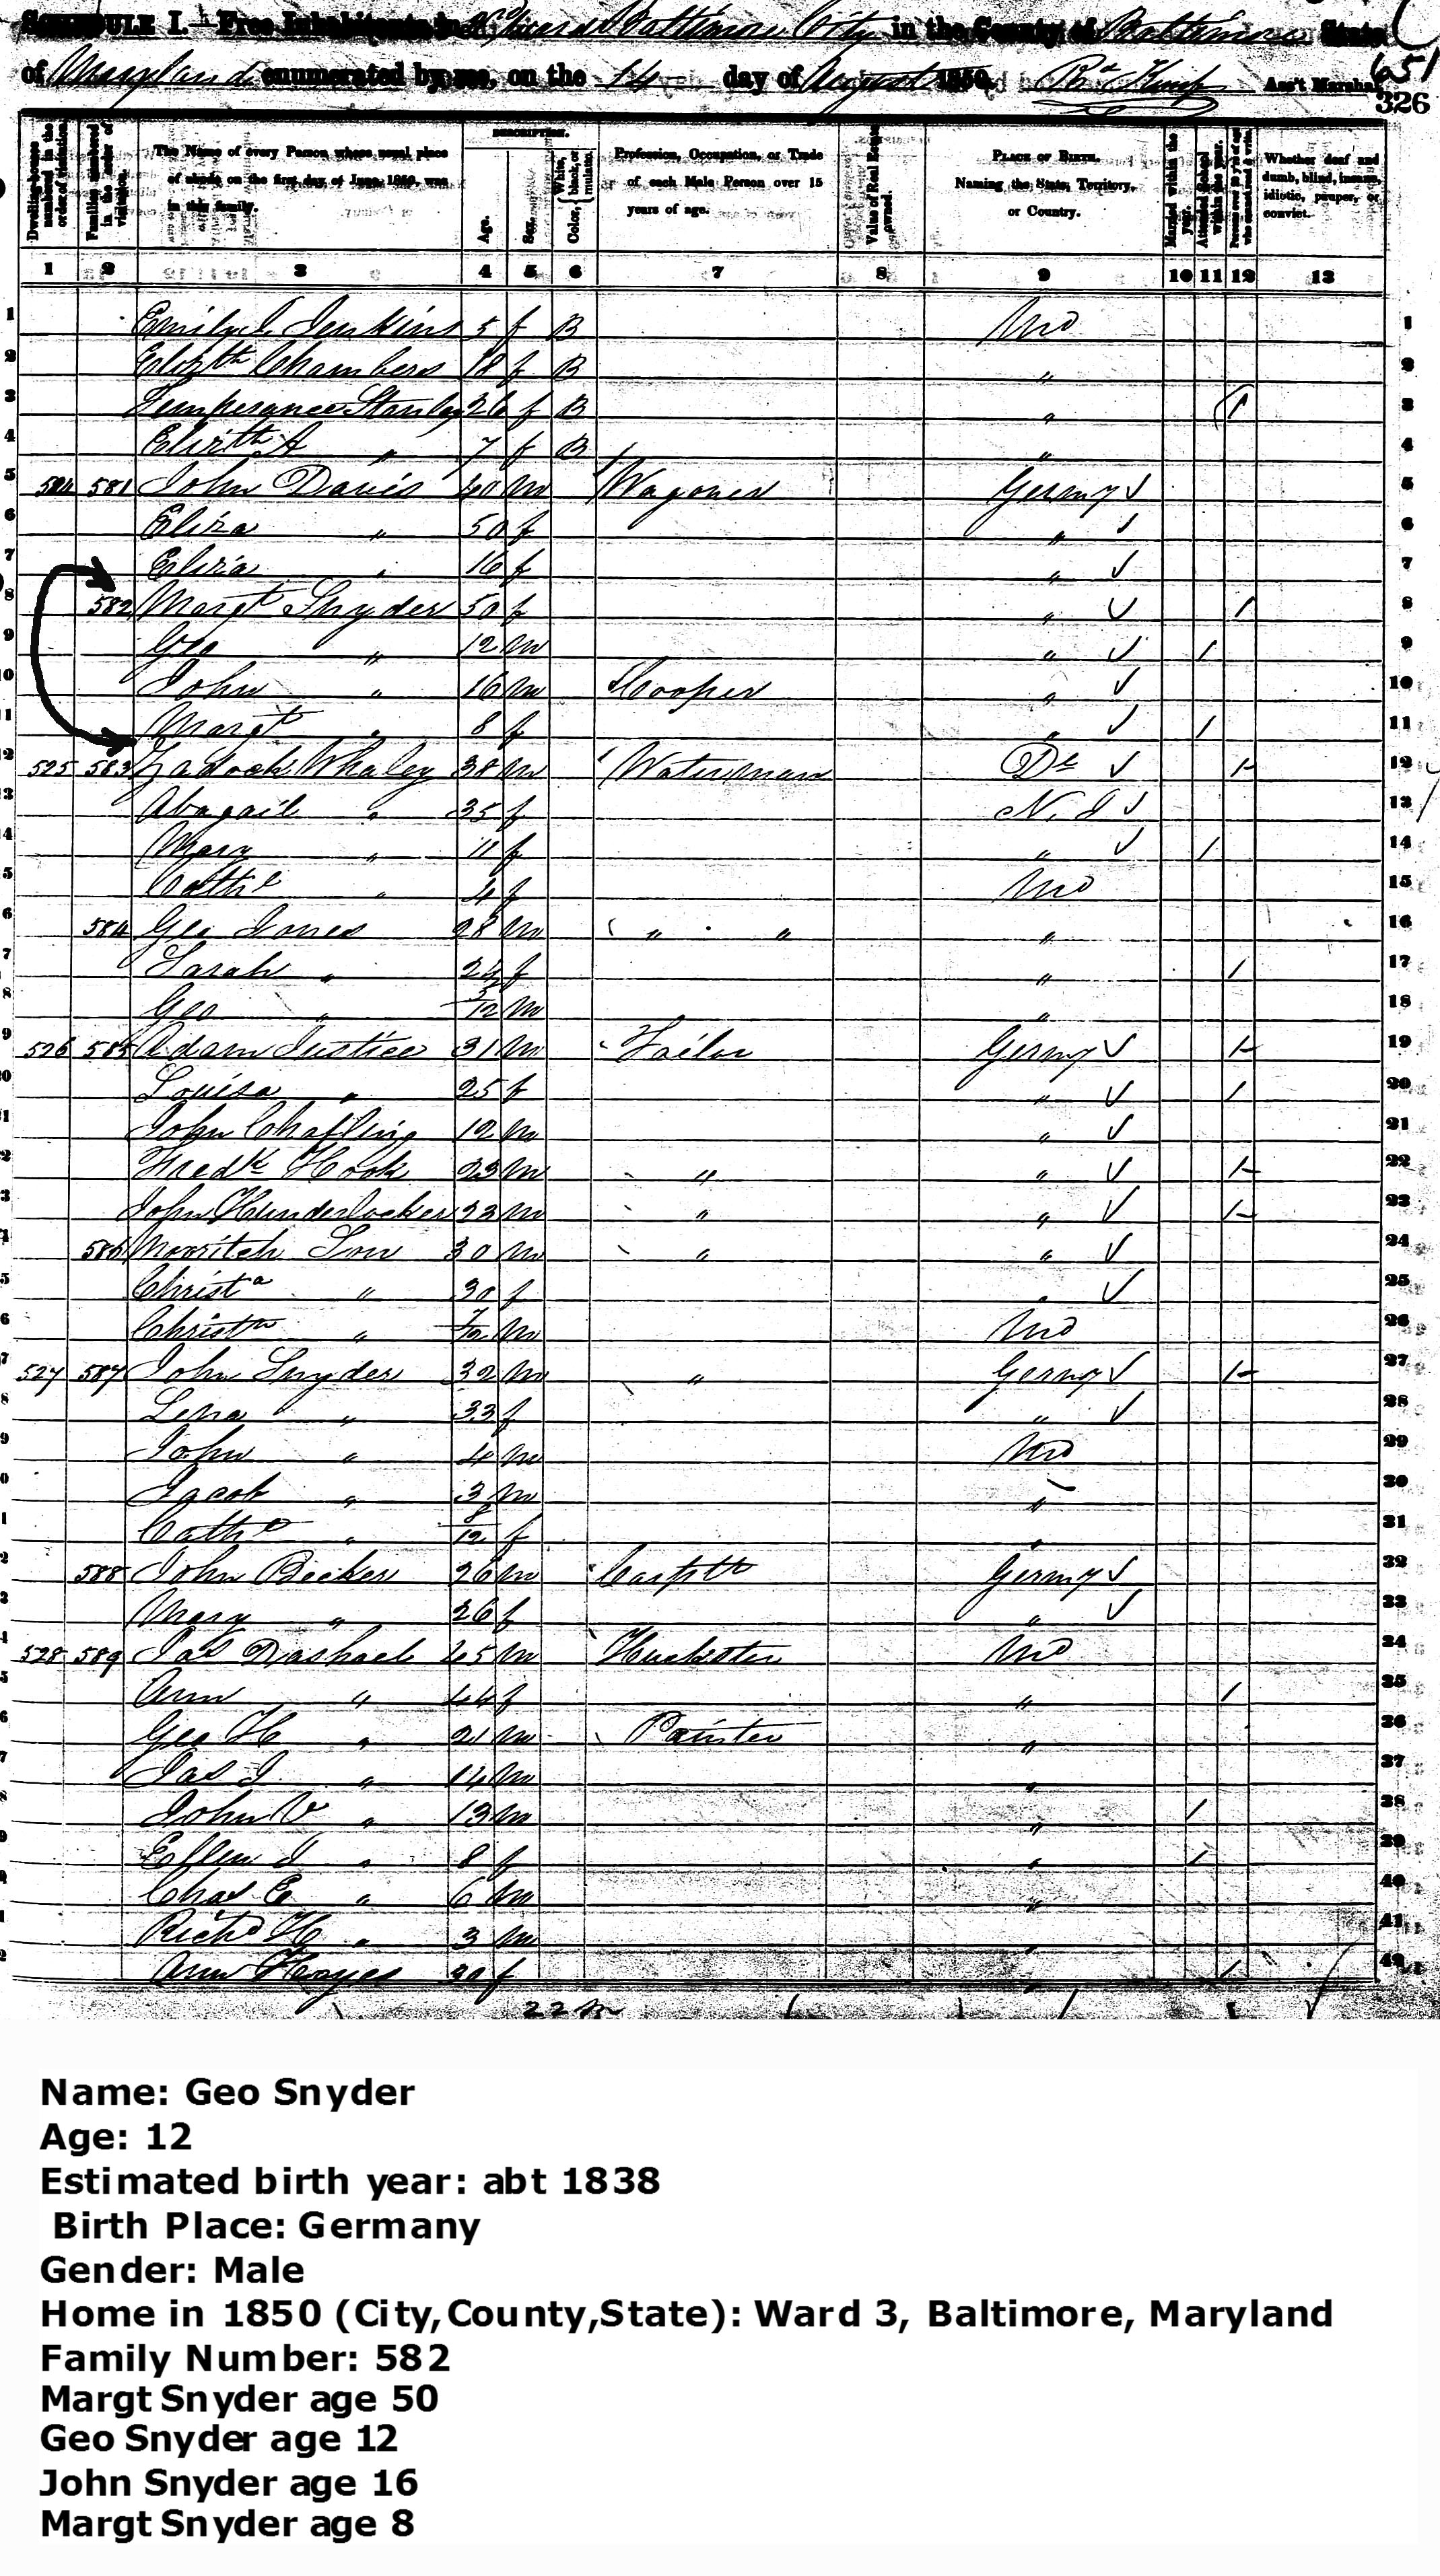 SCHEDULE I. Free Inhabitants in 3d Ward Baltimore City in the County of Baltimore State
of Maryland enumerated by me, on the 14 day of August 1850. Ass't Marshal.
651
326
Dwelling-houses numbered in the order of visitation.
Families numbered in the order of visitation.
The Name of every Person whose usual place of abode on the first day of June, 1850, was in this family.
DESCRIPTION.
Age.
Sex.
Color, White, black, or mulatto.
Profession, Occupation, or Trade of each Male Person over 15 years of age.
Value of Real Estate owned.
PLACE OF BIRTH. Naming the State, Territory, or Country.
Married within the year.
Attended School within the year.
Persons over 20 y'rs of age who cannot read & write.
Whether deaf and dumb, blind, insane, idiotic, pauper, or convict.
1 2 3 4 5 6 7 8 9 10 11 12 13
1 Emily J. Jenkins 5 f B Md 1
2 Elizth Chambers 18 f B " 2
3 Temperance Stanley 26 f B " 1 3
4 Elizth A " 7 f B " 4
5 524 581 John Davis 40 m Wagoner Germy √ 5
6 Eliza " 50 f " √ 6
7 Eliza " 16 f " √ 7
8 582 Margt Snyder 50 f " √ 1 8
9 Geo " 12 m " √ 1 9
10 John " 16 m Cooper " √ 10
11 Margt " 8 f " √ 1 11
12 525 583 Zadock Whaley 38 m Waterman De √ 1 12
13 Abagail " 35 f N.J √ 13
14 Mary " 11 f " √ 1 14
15 Cathe " 4 f Md 15
16 584 Geo Jones 28 m " " " 16
17 Sarah " 24 f " 1 17
18 Geo " /12 m " 18
19 526 585 Adam Justice 31 m Tailor Germy √ 1 19
20 Louisa " 25 f " √ 1 20
21 John Chafling 12 m " √ 21
22 Fredk Hook 23 m " " √ 1 22
23 John Hunderlocker 22 m " " √ 1 23
24 586 Morritch Low 30 m " " √ 24
25 Christa " 30 f " √ 25
26 Christn " /12 m Md 26
27 527 587 John Snyder 32 m " Germy √ 1 27
28 Lena " 33 f " √ 28
29 John " 4 m Md 29
30 Jacob " 3 m " 30
31 Cathe " 8/12 f " 31
32 588 John Becker 26 m Carptr Germy √ 32
33 Mary " 26 f " √ 33
34 528 589 Jas Dashael 45 m Huckster Md 34
35 Ann " 44 f " 1 35
36 Geo H " 21 m Painter " 36
37 Jas J " 14 m " 37
38 John V " 13 m " 1 38
39 Ellen J " 8 f " 1 39
40 Chas E " 6 m " 40
41 Richd H " 3 m " 41
42 Ann Hayes f " 1 42
22 m
Name: Geo Snyder
Age: 12
Estimated birth year: abt 1838
Birth Place: Germany
Gender: Male
Home in 1850 (City,County,State): Ward 3, Baltimore, Maryland
Family Number: 582
Margt Snyder age 50
Geo Snyder age 12
John Snyder age 16
Margt Snyder age 8